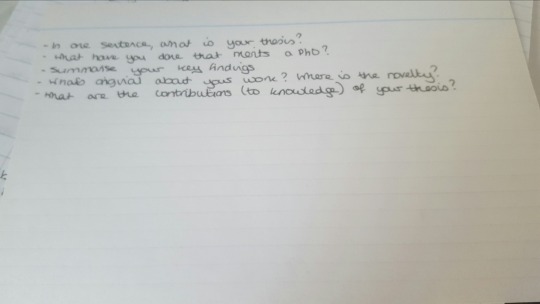 - In one sentence, what is your thesis?
- What have you done that merits a PhD?
- Summarise your key findings
- What's original about your work? Where is the novelty?
- What are the contributions (to knowledge) of your thesis?